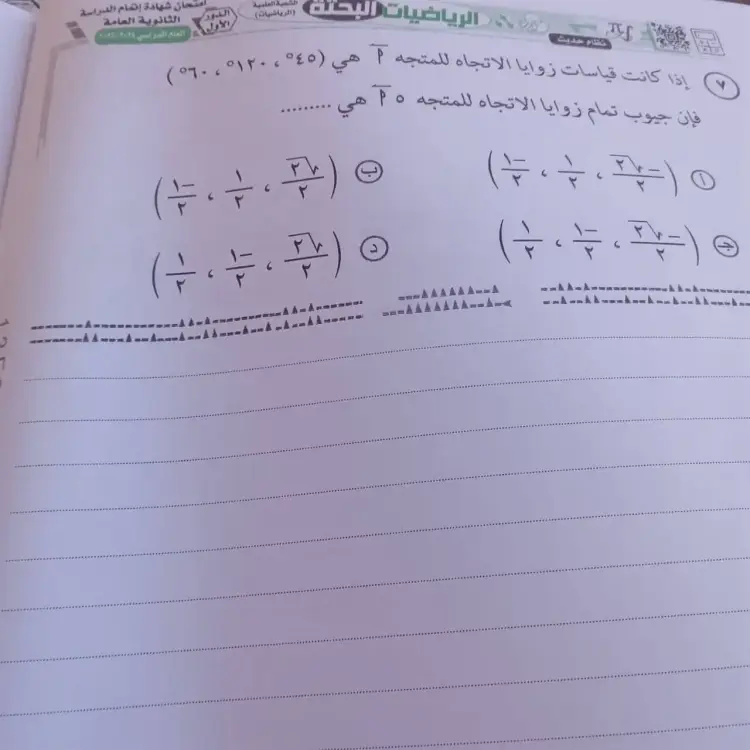 امتحان شهادة إتمام الدراسة
الثانوية العامة
الدور
الأول
الشعبة العلمية
(الرياضيات)
الرياضيات البحتة
نظام حديث
٧ إذا كانت قياسات زوايا الاتجاه للمتجه أ هي (٤٥° ، ١٢٠° ، ٦٠°)
فإن جيوب تمام زوايا الاتجاه للمتجه ٥ أ هي .........
أ (-√٢/٢ ، ١/٢ ، -١/٢)
ب (√٢/٢ ، ١/٢ ، -١/٢)
جـ (-√٢/٢ ، -١/٢ ، ١/٢)
د (√٢/٢ ، -١/٢ ، ١/٢)